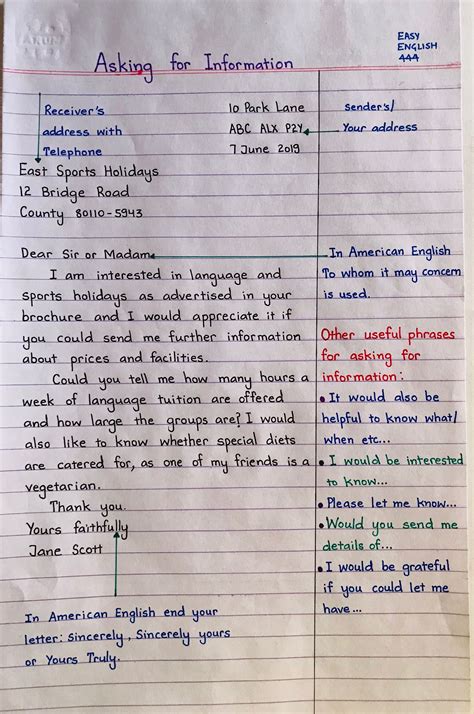 EASY
ENGLISH
444
Asking for Information
Receiver's
address with
Telephone
10 Park Lane
ABC ALX P2Y
7 June 2019
Sender's/
Your address
East Sports Holidays
12 Bridge Road
County 80110-5943
Dear Sir or Madam
I am interested in language and
sports holidays as advertised in your
brochure and I would appreciate it if
you could send me further information
about prices and facilities.
Could you tell me how many hours a
week of language tuition are offered
and how large the groups are? I would
also like to know whether special diets
are catered for, as one of my friends is a
vegetarian.
Thank you.
Yours faithfully
Jane Scott
In American English end your
letter: Sincerely, Sincerely yours
or Yours Truly.
In American English
To whom it may concern
is used.
Other useful phrases
for asking for
information:
• It would also be
helpful to know what/
when etc...
• I would be interested
to know...
• Please let me know...
• Would you send me
details of...
• I would be grateful
if you could let me
have...